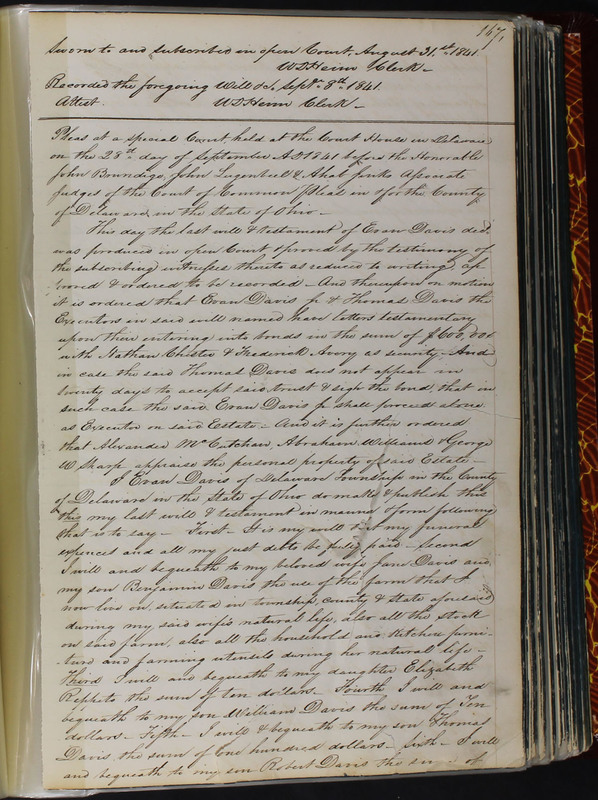 147,
Sworn to and subscribed in open Court, August 31.st 1841.
W D Heim Clerk –
Recorded the foregoing Will &c. Septr. 8th 1841.
Attest. W D Heim Clerk –
Pleas at a special Court held at the Court House in Delaware
on the 28th day of September AD 1841 before the Honorable
John Brundige, John Lugenbeel & Ahab Jinks Associate
Judges of the Court of Common Pleas in & for the County
of Delaware in the State of Ohio –
This day the last will & testament of Evan Davis decd
was produced in open Court & proved by the testimony of
the subscribing witnesses thereto as reduced to writing, ap
proved & ordered to be recorded – And thereupon on motion
it is ordered that Evan Davis jr & Thomas Davis the
Executors in said will named have letters testamentary
upon their entering into bonds in the sum of $600,00
with Nathan Chester & Frederick Avery as security – And
in case the said Thomas Davis does not appear in
twenty days to accept said trust & sign the bond, that in
such case the said Evan Davis jr shall proceed alone
as Executor on said Estate – And it is further ordered
that Alexander Mc Cutchan, Abraham Williams & George
W Sharp appraise the personal property of said Estate –
I Evan Davis of Delaware Township in the County
of Delaware in the State of Ohio do make & publish this
this my last will & testament in manner & form following
that is to say – First – It is my will that my funeral
expences and all my just debts be fully paid – Second
I will and bequeath to my beloved wife Jane Davis and
my son Benjamin Davis the use of the farm that I
now live on, situated in township, county & State aforesaid
during my said wifes natural life, also all the stock
on said farm, also all the household and kitchen furni-
ture and farming utensils during her natural life –
Third I will and bequeath to my daughter Elizabeth
the sum of ten dollars – Fourth I will and
bequeath to my son William Davis the sum of Ten
dollars – Fifth – I will & bequeath to my son Thomas
Davis the sum of One hundred dollars – Sixth – I will
and bequeath to my son Robert Davis the sum of